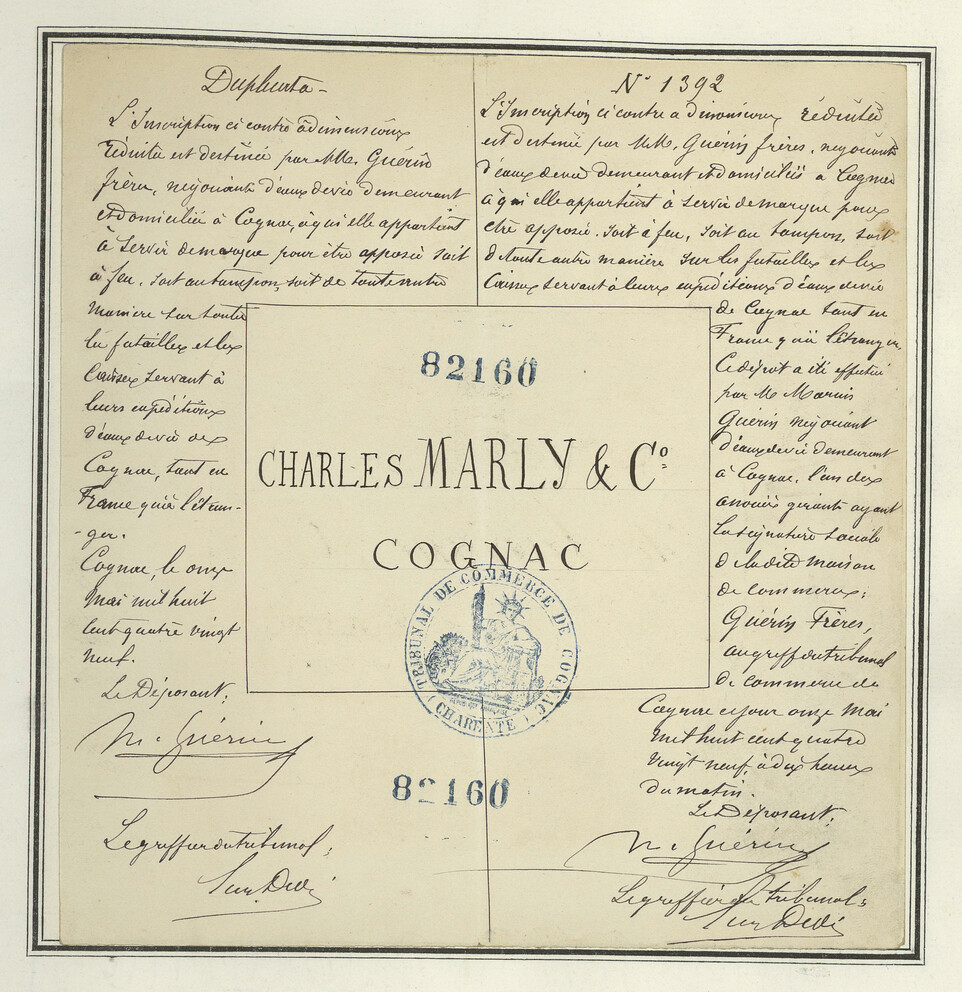 Duplicata -
L'Inscription ci contre à dimensions
réduite est destinée par MM. Guérin
frères, négociants d'eaux de vie demeurant
et domiciliés à Cognac, à qui elle appartient
à servir de marque pour être apposée soit
à feu, soit au tampon, soit de toute autre
manière sur toutes
les futailles et les
Caisses servant à
leurs expéditions
d'eaux de vie de
Cognac, tant en
France qu'à l'étran-
-ger.
Cognac, le onze
Mai mil huit
cent quatre vingt
neuf.
Le Déposant,
M. Guérin
Le greffier du tribunal,
N° 1392
L'Inscription ci contre a dimensions réduites
est destinée par M.M. Guérin frères, négociants
d'eaux de vie demeurant et domiciliés à Cognac
à qui elle appartient à servir de marque pour
être apposée, soit à feu, soit au tampon, soit
de toute autre manière sur les futailles et les
Caisses servant à leurs expéditions d'eaux de vie
de Cognac tant en
France qu'à l'étranger,
Ce dépôt a été effectué
par M.
Guérin négociant
d'eaux de vie demeurant
à Cognac, l'un des
associés gérants ayant
la signature sociale
de la dite maison
de commerce;
Guérin Frères,
au greffe du tribunal
de commerce de
Cognac ce jour onze Mai
mil huit cent quatre
vingt neuf, à dix heures
du matin.
Le Déposant,
M. Guérin
Le greffier du tribunal;
82160
CHARLES MARLY & Co.
COGNAC
TRIBUNAL DE COMMERCE DE COGNAC
(CHARENTE)
82160